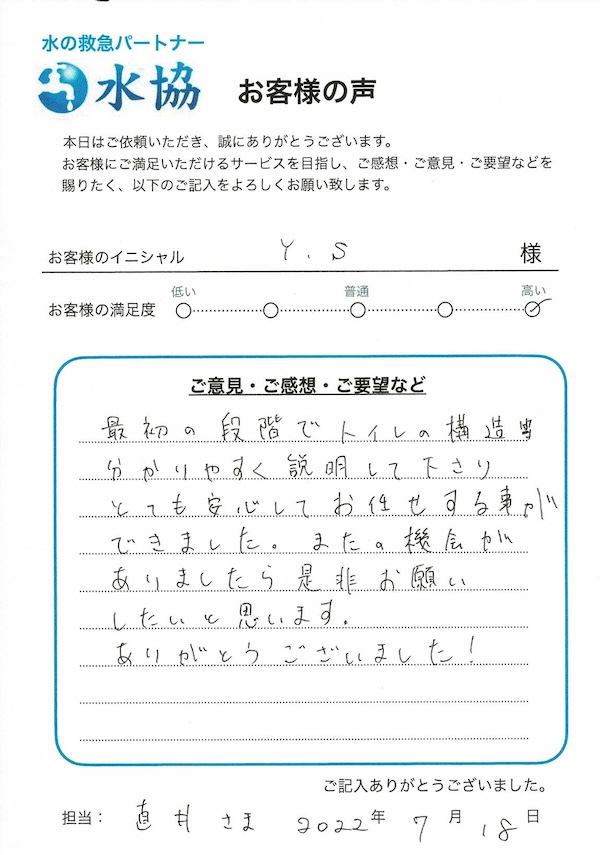 水の救急パートナー
水協 お客様の声
本日はご依頼いただき、誠にありがとうございます。
お客様にご満足いただけるサービスを目指し、ご感想・ご意見・ご要望などを
賜りたく、以下のご記入をよろしくお願い致します。
お客様のイニシャル Y.S 様
低い 普通 高い
お客様の満足度
ご意見・ご感想・ご要望など
最初の段階でトイレの構造
分かりやすく説明して下さり
とても安心してお任せする事が
できました。またの機会が
ありましたら是非お願い
したいと思います。
ありがとうございました!
ご記入ありがとうございました。
担当: 直井さま 2022年 7月 18日